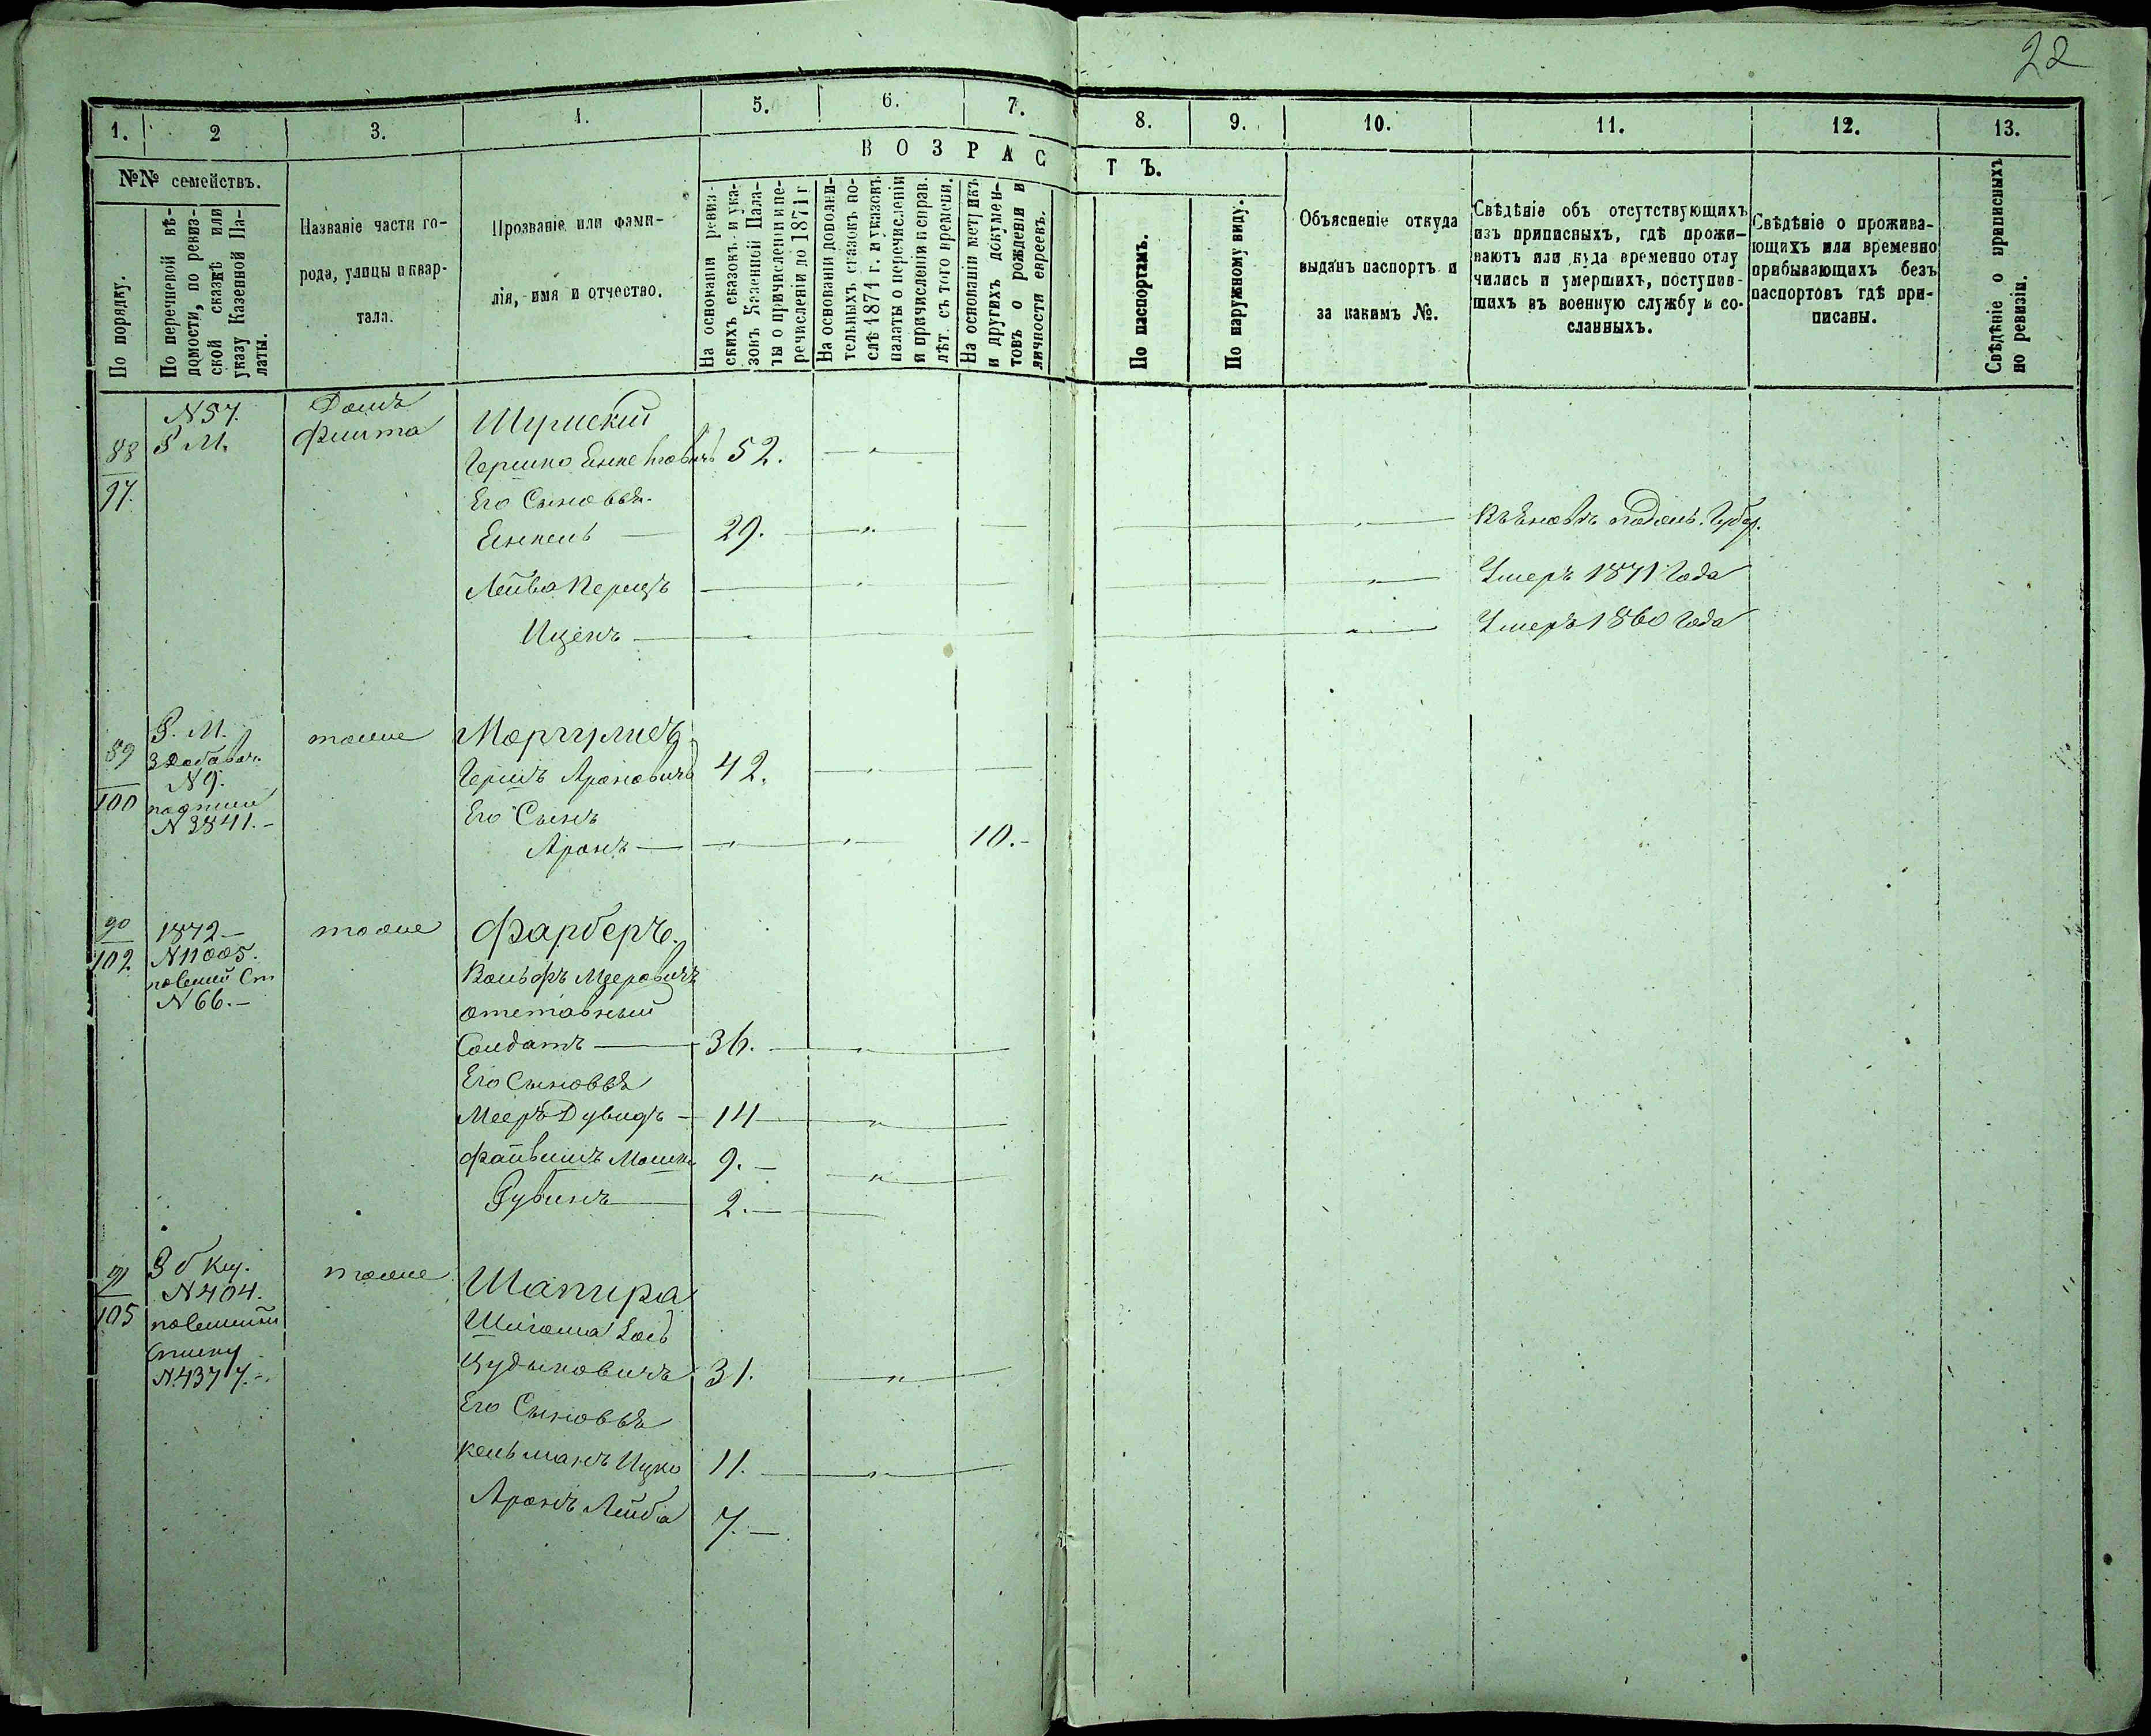 22
1. 2 3. 4. 5. 6. 7. 8. 9. 10. 11. 12. 13.
ВОЗРАСТЪ.
№№ семействъ.
По порядку.
По перечневой вѣ-
домости, по ревиз-
ской сказкѣ или
указу Казенной Па-
латы.
Названіе части го-
рода, улицы и квар-
тала.
Прозваніе или фами-
лія, имя и отчество.
На основаніи ревиз-
скихъ сказокъ и ука-
зовъ Казенной Пала-
ты о причисленіи и пе-
речисленіи до 1871 г
На основаніи дополни-
тельныхъ сказокъ по-
слѣ 1871 г. и указовъ
палаты о перечисленіи
и причисленіи и справ.
лѣт. съ того времени.
На основаніи метрикъ
и другихъ докумен-
товъ о рожденіи и
личности евреевъ.
По паспортамъ.
По наружному виду.
Объясненіе откуда
выданъ паспортъ и
за какимъ №.
Свѣдѣніе объ отсутствующихъ
изъ приписныхъ, гдѣ прожи-
ваютъ или куда временно отлу
чились и умершихъ, поступив-
шихъ въ военную службу и со-
сланныхъ.
Свѣдѣніе о прожива-
ющихъ или временно
прибывающихъ безъ
паспортовъ гдѣ при-
писаны.
Свѣдѣніе о приписныхъ
по ревизіи.
N 57. Домъ
88 Р М. Финта Шумскій
97. Гершко Янкелевичъ 52. — " —
Его Сыновья
Янкель — 29. — " —
Подоль. Губер.
Лейва Перецъ — " — Умеръ 1871 Года
Иценъ — " — Умеръ 1860 Года
89 Р. М. тоже Моргулисъ
3 добавоч.
N 9. Гершъ Ароновичъ 42. — " —
100
N 3841.- Его Сынъ
Аронъ — " — " — 10.-
90 1872 — тоже Фарберъ
102 N 11005.
N 66.- Вольфъ Мееровичъ
отставный
Солдатъ — 36. — " —
Его Сыновья
Мееръ Дувидъ — 14 — " —
Файвишъ Мошко 9. — " —
Рувинъ — 2. —
91 тоже Шапира
N 404.
105
N 4377.- Шлiома
Цудыковичъ 31. — " —
Его Сыновья
Кельманъ Ицко 11. — " —
Аронъ Лейба 7. —